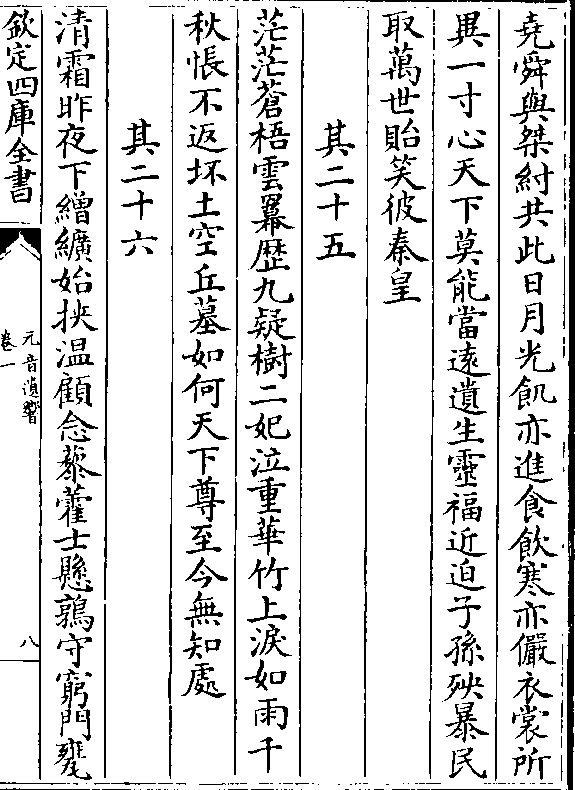 堯舜與桀紂共此日月光飢亦進食飲寒亦儼衣裳所
異一寸心天下莫能當遠遺生靈福近迫子孫殃暴民
取萬世貽笑彼秦皇
其二十五
茫茫蒼梧雲羃歴九疑樹二妃泣重華竹上淚如雨千
秋悵不返坏土空丘墓如何天下尊至今無知處
其二十六
清霜昨夜下繒纊始挾溫顧念藜藿士懸鶉守窮門甕
欽定四庫全書
元音遺響
卷一
八